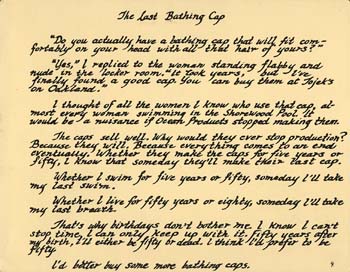 The Last Bathing Cap
"Do you actually have a bathing cap that will fit com-
fortably on your head with all that hair of yours?"
"Yes," I replied to the woman standing flabby and
nude in the locker room. "It took years, but I've
finally found a good cap. You can buy them at Tojek's
on Oakland."
I thought of all the women I know who use that cap, al-
most every woman swimming in the Shorewood Pool. It
would be a nuisance if Ocean Products stopped making them.
The caps sell well. Why would they ever stop production?
Because they will. Because everything comes to an end
eventually. Whether they make the caps for five years or
fifty, I know that someday they'll make their last cap.
Whether I swim for five years or fifty, someday I'll take
my last swim.
Whether I live for fifty years or eighty, someday I'll take
my last breath.
That's why birthdays don't bother me. I know I can't
stop time, I can only keep up with it. Fifty years after
my birth, I'll either be fifty or dead. I think I'd prefer to be
fifty.
I'd better buy some more bathing caps.
9